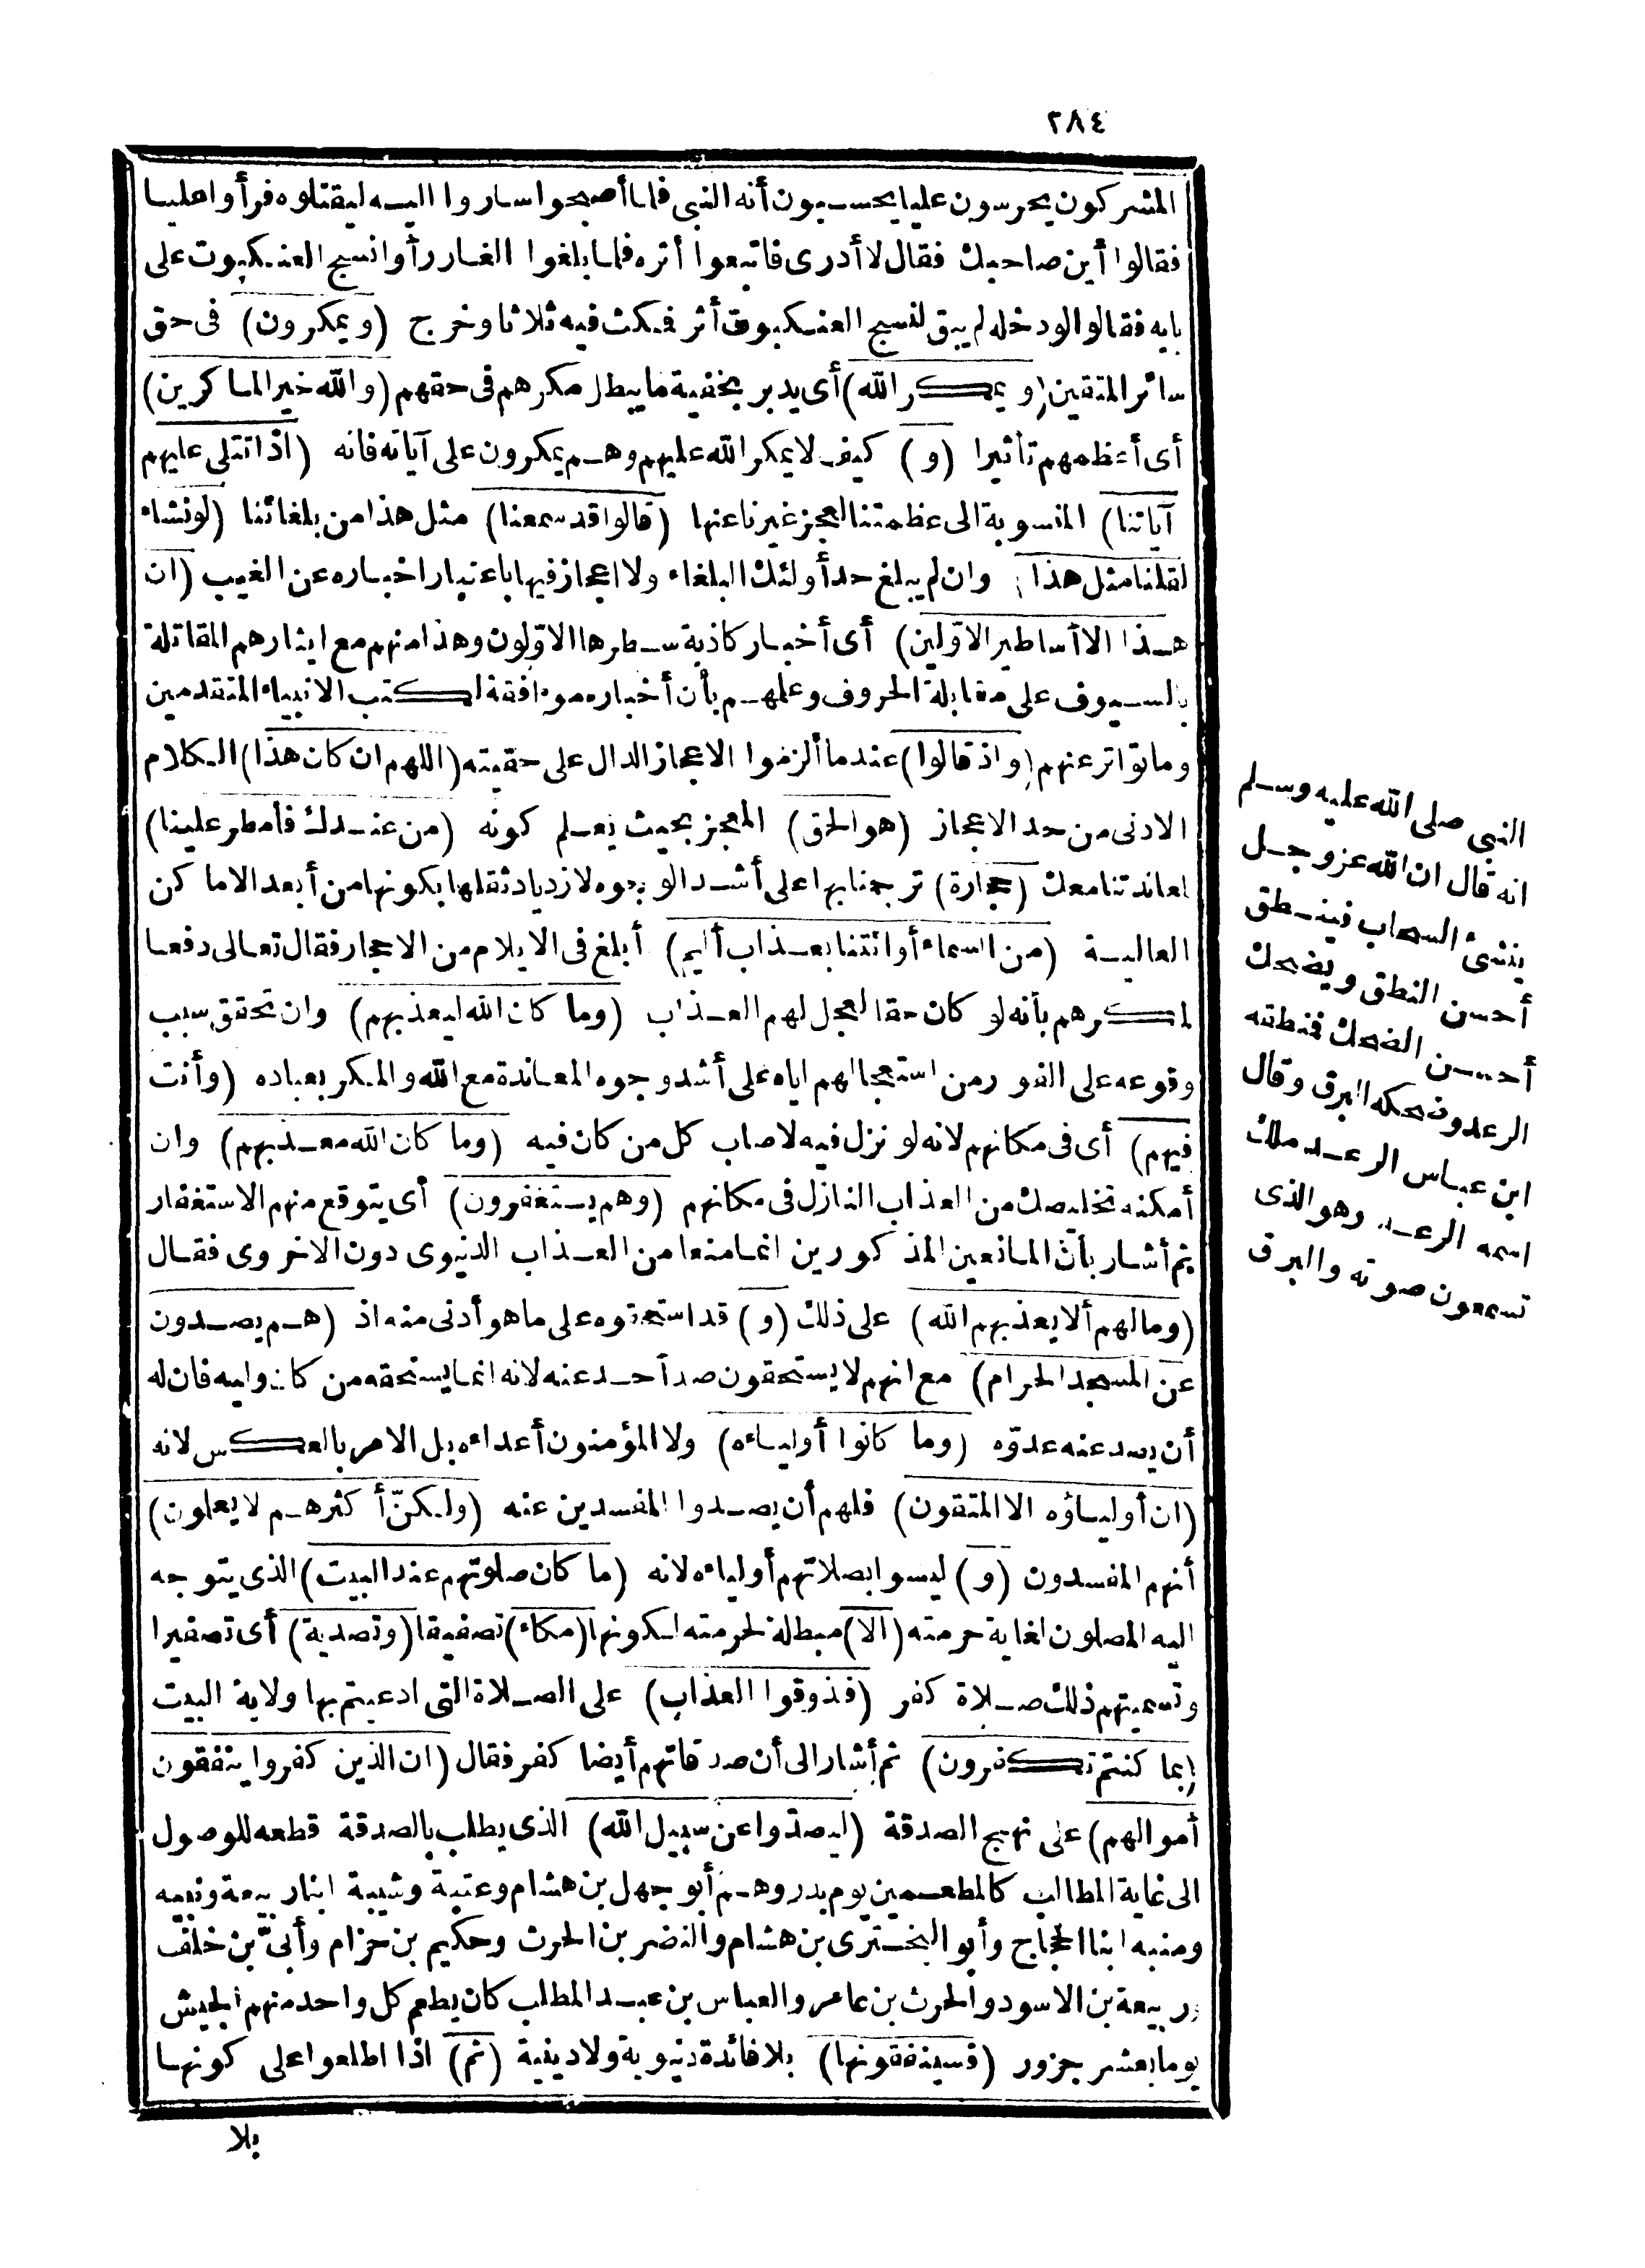 ٢٨٤
المشركون يحرسون عليا يحسبون أنه النبى فلما أصبحوا ساروا اليه ليقتلوه فرأوا عليا
فقالوا أين صاحبك فقال لا أدرى فاتبعوا أثره فلما بلغوا الغار رأوا نسج العنكبوت على
بابه فقالوا لو دخله لم يبق لنسج العنكبوت أثر فمكث فيه ثلاثا وخرج (ويمكرون) فى حق
سائر المتقين (ويمكر الله) أى يدبر بخفية ما يبطل مكرهم فى حقهم (والله خير الماكرين)
أى أعظمهم تأثيرا (و) كيف لا يمكر الله عليهم وهم يمكرون على آياته فانه (اذا تتلى عليهم
آياتنا) المنسوبة الى عظمتنا لعجز غيرنا عنها (قالوا قد سمعنا) مثل هذا من بلغائنا (لو نشاء
لقلنا مثل هذا) وان لم يبلغ حد أولئك البلغاء ولا اعجاز فيها باعتبار اخباره عن الغيب (ان
هذا الا أساطير الاوّلين) أى أخبار كاذبة سطرها الاوّلون وهذا منهم مع ايثارهم المقاتلة
بالسيوف على مقابلة الحروف وعلمهم بأن أخباره موافقة لكتب الانبياء المتقدمين
وما تواتر عنهم (واذ قالوا) عندما ألزموا الاعجاز الدال على حقيته (اللهم ان كان هذا) الكلام
الادنى من حد الاعجاز (هو الحق) المعجز بحيث يعلم كونه (من عندك فأمطر علينا)
لمعاندتنا معك (حجارة) ترجمنا بها على أشد الوجوه لازدياد ثقلها بكونها من أبعد الاماكن
العالية (من السماء أو ائتنا بعذاب أليم) أبلغ فى الايلام من الاحجار فقال تعالى دفعا
لمكرهم بأنه لو كان حقا لعجل لهم العذاب (وما كان الله ليعذبهم) وان تحقق سبب
وقوعه على الفور من استعجالهم اياه على أشد وجوه المعاندة مع الله والمكر بعباده (وأنت
فيهم) أى فى مكانهم لانه لو نزل فيه لاصاب كل من كان فيه (وما كان الله معذبهم) وان
أمكنه تخليصك من العذاب النازل فى مكانهم (وهم يستغفرون) أى يتوقع منهم الاستغفار
ثم أشار بأنّ المانعين المذكورين انما منعا من العذاب الدنيوى دون الاخروى فقال
(وما لهم ألا يعذبهم الله) على ذلك (و) قد استحقوه على ما هو أدنى منه اذ (هم يصدون
عن المسجد الحرام) مع انهم لا يستحقون صد أحد عنه لانه انما يستحقه من كان وليه فان له
أن يصد عنه عدوّه (وما كانوا أولياءه) ولا المؤمنون أعداءه بل الامر بالعكس لانه
(ان أولياؤه الا المتقون) فلهم أن يصدوا المفسدين عنه (ولكنّ أكثرهم لا يعلمون)
أنهم المفسدون (و) ليسوا بصلاتهم أولياءه لانه (ما كان صلوتهم عند البيت) الذى يتوجه
اليه المصلون لغاية حرمته (الا) مبطلة لحرمته لكونها (مكاء) تصفيقا (وتصدية) أى تصفيرا
وتسميتهم ذلك صلاة كفر (فذوقوا العذاب) على الصلاة التى ادعيتم بها ولاية البيت
(بما كنتم تكفرون) ثم أشار الى أن صدقاتهم أيضا كفر فقال (ان الذين كفروا ينفقون
أموالهم) على نهج الصدقة (ليصدّوا عن سبيل الله) الذى يطلب بالصدقة قطعه للوصول
الى غاية المطالب كالمطعمين يوم بدر وهم أبو جهل بن هشام وعتبة وشيبة ابنا ربيعة ونبيه
ومنبه ابنا الحجاج وأبو البخترى بن هشام والنضر بن الحرث وحكيم بن حزام وأبىّ بن خلف
وربيعة بن الاسود والحرث بن عامر والعباس بن عبد المطلب كان يطعم كل واحد منهم الجيش
يوما بعشر جزور (فسينفقونها) بلا فائدة دنيوية ولا دينية (ثم) اذا اطلعوا على كونها
بلا
النبى صلى الله عليه وسلم
انه قال ان الله عز وجل
ينشئ السحاب فينطق
أحسن النطق ويضحك
أحسن الضحك فنطقه
الرعد وضحكه البرق وقال
ابن عباس الرعد ملك
اسمه الرعد وهو الذى
تسمعون صوته والبرق